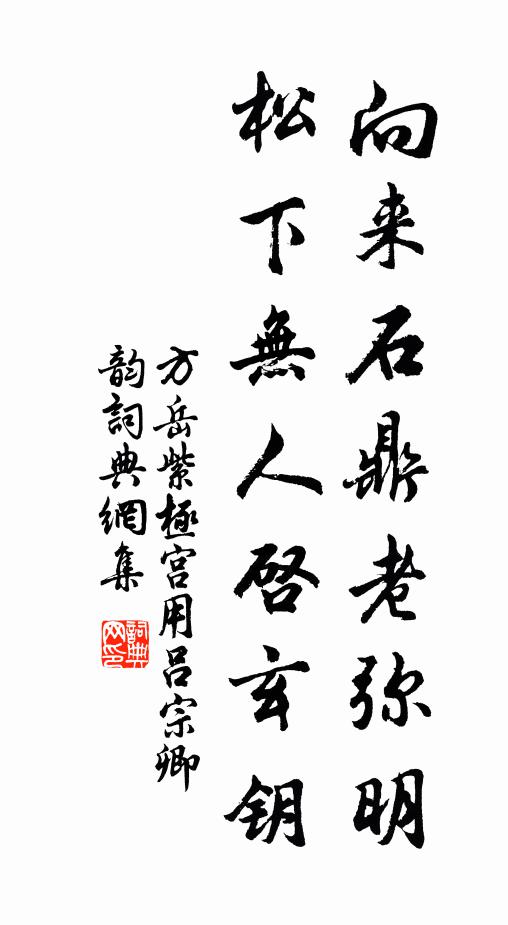 向来石鼎老弥明
松下無人啓玄钥
方岳紫極宫用吕宗卿
韵詞典網集
詞典网印